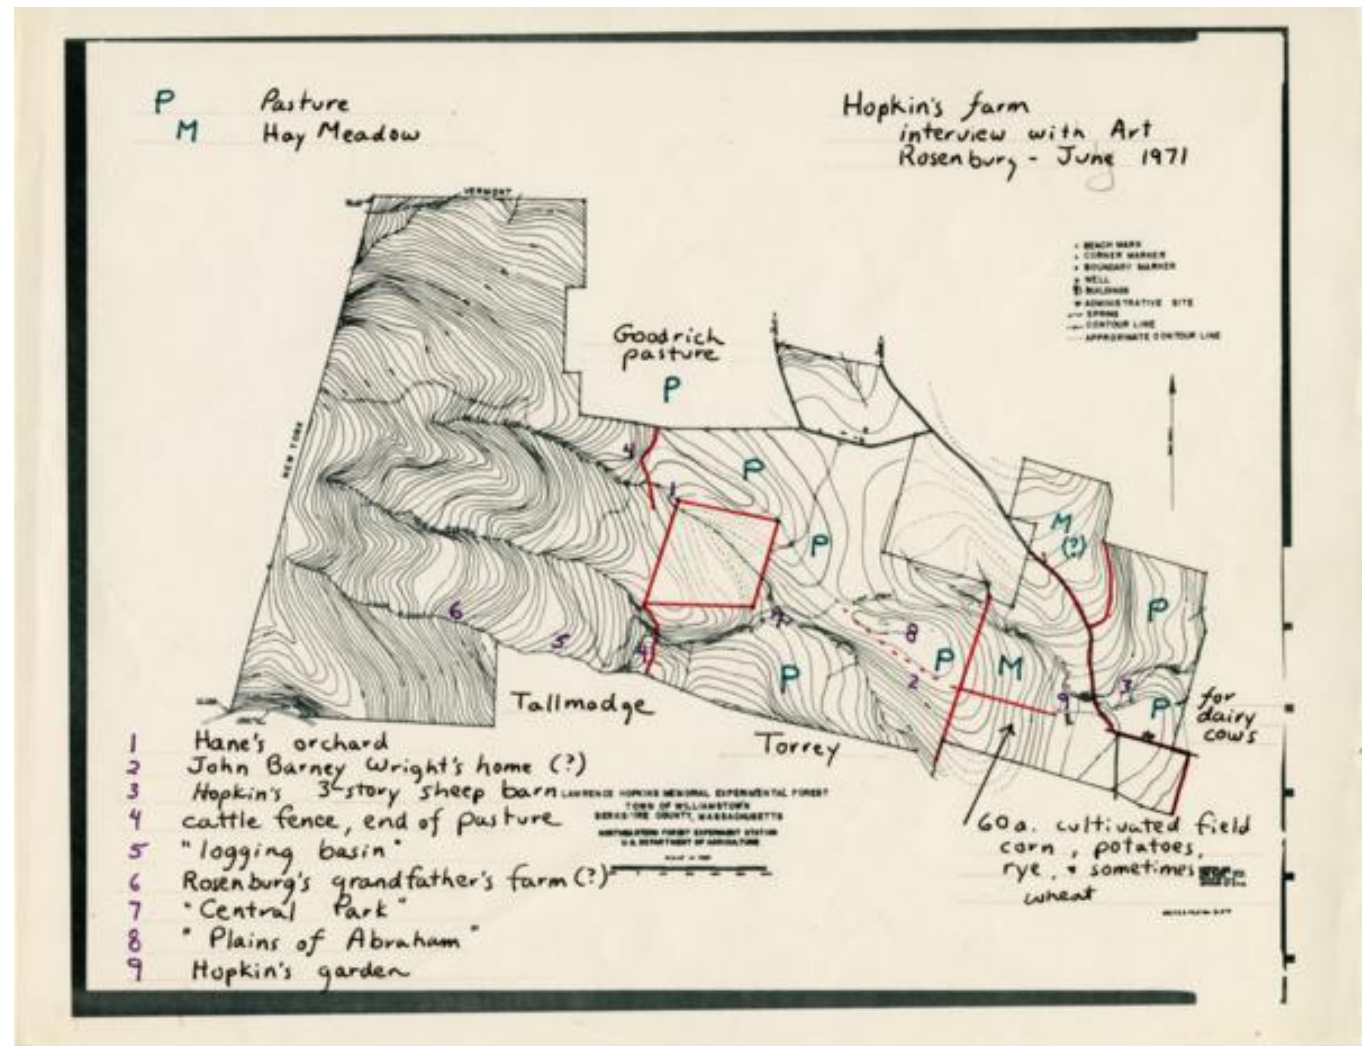 P Pasture
M Hay Meadow
Hopkin's farm
interview with Art
Rosenburg - June 1971
VERMONT
BENCH MARK
CORNER MARKER
BOUNDARY MARKER
WELL
BUILDINGS
ADMINISTRATIVE SITE
SPRING
CONTOUR LINE
APPROXIMATE CONTOUR LINE
Goodrich
pasture
P
NEW YORK
4
P
1
P
M
(?)
P
6
5
4
7
8
P
P
M
2
9
3
P
for
dairy
cows
Tallmadge
Torrey
1 Hane's orchard
2 John Barney Wright's home (?)
3 Hopkin's 3-story sheep barn
4 cattle fence, end of pasture
5 "logging basin"
6 Rosenburg's grandfather's farm (?)
7 "Central Park"
8 "Plains of Abraham"
9 Hopkin's garden
LAWRENCE HOPKINS MEMORIAL EXPERIMENTAL FOREST
TOWN OF WILLIAMSTOWN
BERKSHIRE COUNTY, MASSACHUSETTS
NORTHEASTERN FOREST EXPERIMENT STATION
U.S. DEPARTMENT OF AGRICULTURE
60 a. cultivated field
corn, potatoes,
rye, + sometimes
wheat